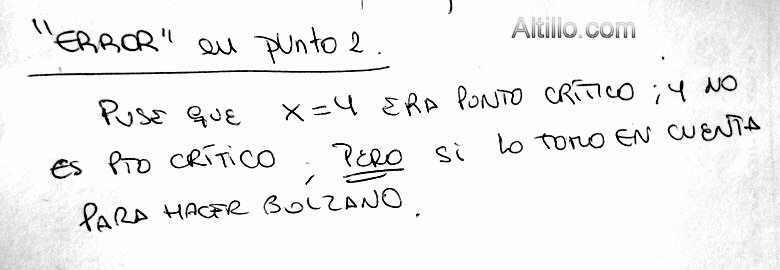 Altillo.com
"ERROR" en punto 2.
PUSE QUE X=4 ERA PUNTO CRÍTICO; Y NO
ES PTO CRÍTICO, PERO SI LO TOMO EN CUENTA
PARA HACER BOLZANO.